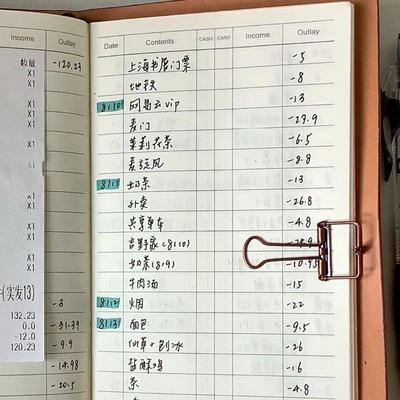 Income Outlay
-120.23
数量
X1
X1
X1
X1
X1
X1
X1
X1
X1
X1
X1
(实发13)
132.23
0.0
-12.0
120.23
-3
-31.39
-9.9
-14.98
-20.5
Date Contents CASH CARD Income Outlay
上海书展门票 -5
地铁 -8
8.10 网易云vip -13
麦门 -29.9
茉莉花茶 -6.5
麦旋风 -8.8
8.11 奶茶 -13
外卖 -26.8
共享单车 -4.8
吉野家(8.10)
奶茶(8.9) -10.95
牛肉汤 -15
8.12 烟 -22
8.13 面包 -9.5
仙草+刨冰 -26
盐酥鸡 -16
茶 -4.8